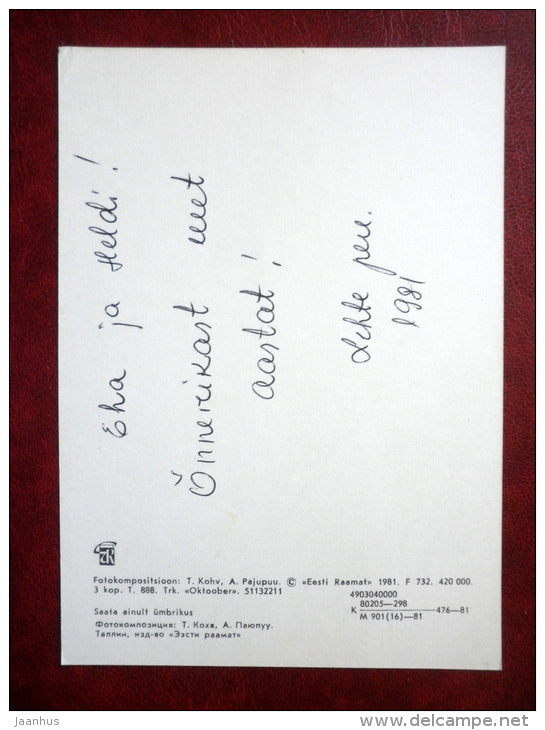 Eha ja Heldi!
Õnnerikast uut
aastat!
Lehte per.
1981
Fotokompositsioon: T. Kohv, A. Pajupuu. © «Eesti Raamat» 1981. F 732. 420 000.
3 kop. T. 888. Trk. «Oktoober». 51132211
Saata ainult ümbrikus
Фотокомпозиция: Т. Кохв, А. Паюпуу.
Таллин, изд-во «Ээсти раамат»
4903040000
К 80205—298 476—81
М 901(16)—81
jaanhus
www.delcampe.net